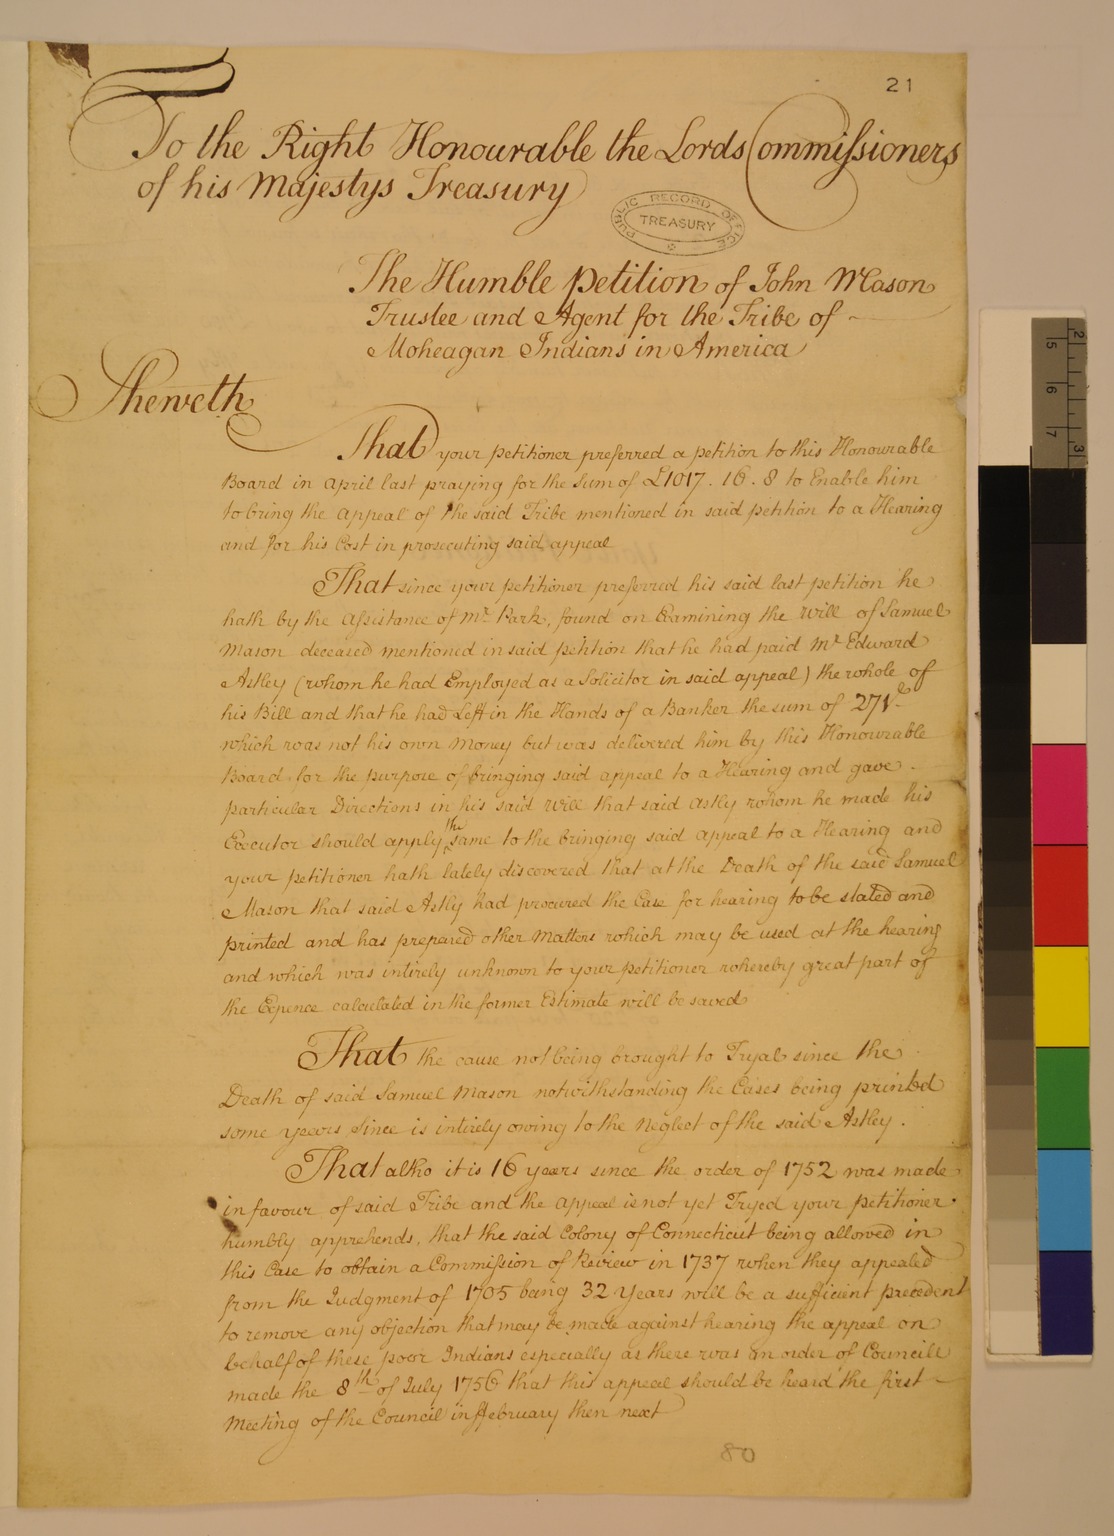 21
To the Right Honourable the Lords Commissioners
of his Majestys Treasury
PUBLIC RECORD OFFICE
TREASURY
The Humble Petition of John Mason
Trustee and Agent for the Tribe of
Moheagan Indians in America
Sheweth
That your petitioner preferred a petition to this Honourable
Board in April last praying for the Sum of £1017. 16. 8 to Enable him
to bring the appeal of the said Tribe mentioned in said petition to a Hearing
and for his Cost in prosecuting said appeal
That since your petitioner preferred his said last petition he
hath by the Assistance of Mr Park, found on Examining the Will of Samuel
Mason deceased mentioned in said petition that he had paid Mr Edward
Astley (whom he had Employed as a Solicitor in said appeal) the whole of
his Bill and that he had Left in the Hands of a Banker the sum of 271 £
which was not his own Money but was delivered him by this Honourable
Board for the purpose of bringing said appeal to a Hearing and gave
particular Directions in his said Will that said Astly whom he made his
Executor should apply the same to the bringing said appeal to a Hearing and
your petitioner hath lately discovered that at the Death of the said Samuel
Mason that said Astly had procured the Case for hearing to be stated and
printed and has prepared other Matters which may be used at the hearing
and which was intirely unknown to your petitioner whereby great part of
the Expence calculated in the former Estimate will be saved
That the cause not being brought to Tryal since the
Death of said Samuel Mason notwithstanding the Cases being printed
some years since is intirely owing to the Neglect of the said Astley.
That altho it is 16 years since the order of 1752 was made
in favour of said Tribe and the appeal is not yet Tryed your petitioner
humbly apprehends, that the said Colony of Connecticut being allowed in
this Case to obtain a Commission of Review in 1737 when they appealed
from the Judgment of 1705 being 32 years will be a sufficient precedent
to remove any objection that may be made against hearing the appeal on
behalf of these poor Indians especially as there was an order of Councill
made the 8th of July 1756 that this appeal should be heard the first
Meeting of the Council in ffebruary then next
80
2
5
6
7
3